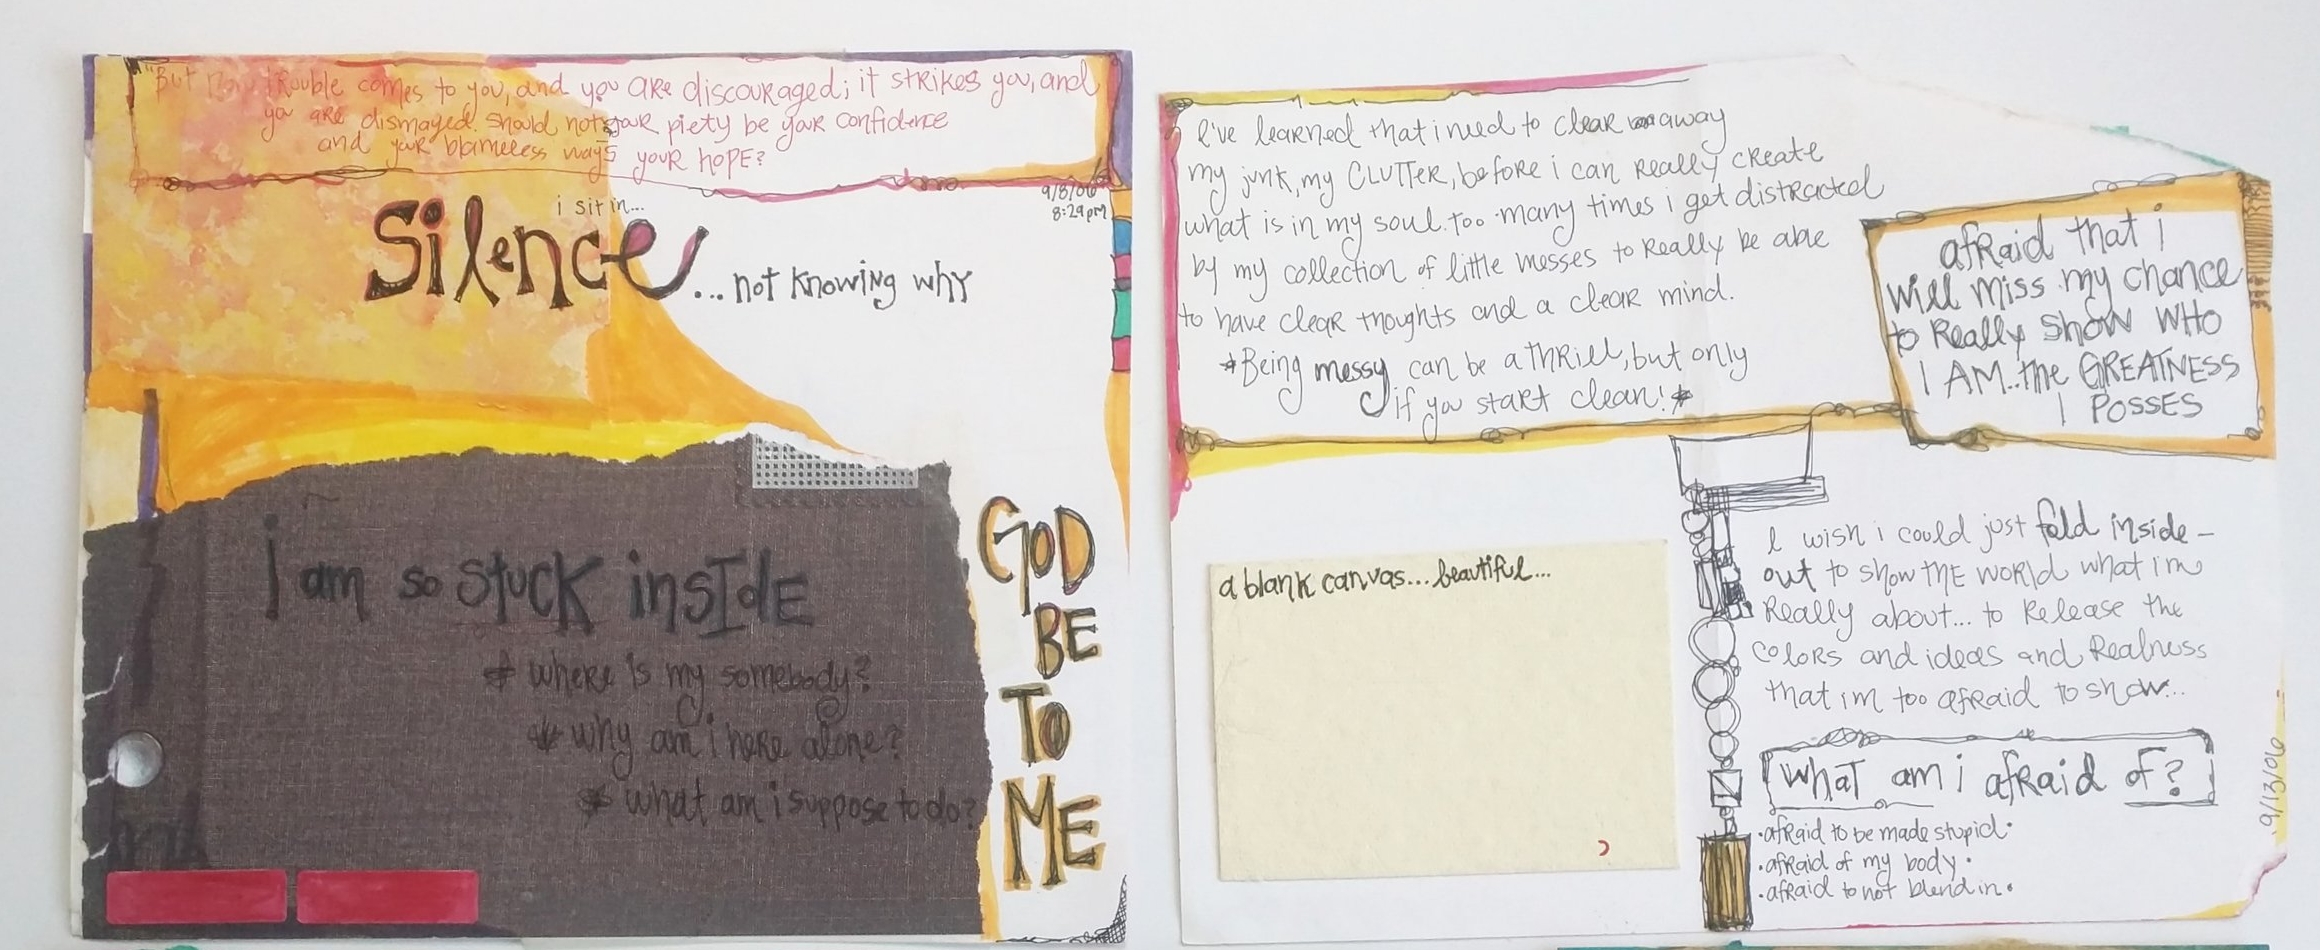 "But now trouble comes to you, and you are discouraged; it strikes you, and
you are dismayed. Should not your piety be your confidence
and your blameless ways your HOPE?
9/8/06
8:29pm
i sit in...
Silence
...not knowing why
i am so stuck insIdE
* where is my somebody?
* why am i here alone?
* what am i suppose to do?
GOD
BE
TO
ME
I've learned that i need to clear away
my junk, my CLUTTER, before i can really create
what is in my soul. too many times i get distracted
by my collection of little messes to really be able
to have clear thoughts and a clear mind.
*Being messy can be a thrill, but only
if you start clean!*
afraid that i
will miss my chance
to Really show WHO
I AM..the GREATNESS
I POSSES
a blank canvas...beautiful...
I wish i could just fold inside-
out to show the world what im
Really about... to release the
colors and ideas and Realness
that im too afraid to show...
What am i afraid of?
·afraid to be made stupid·
·afraid of my body·
·afraid to not blend in·
9/13/06